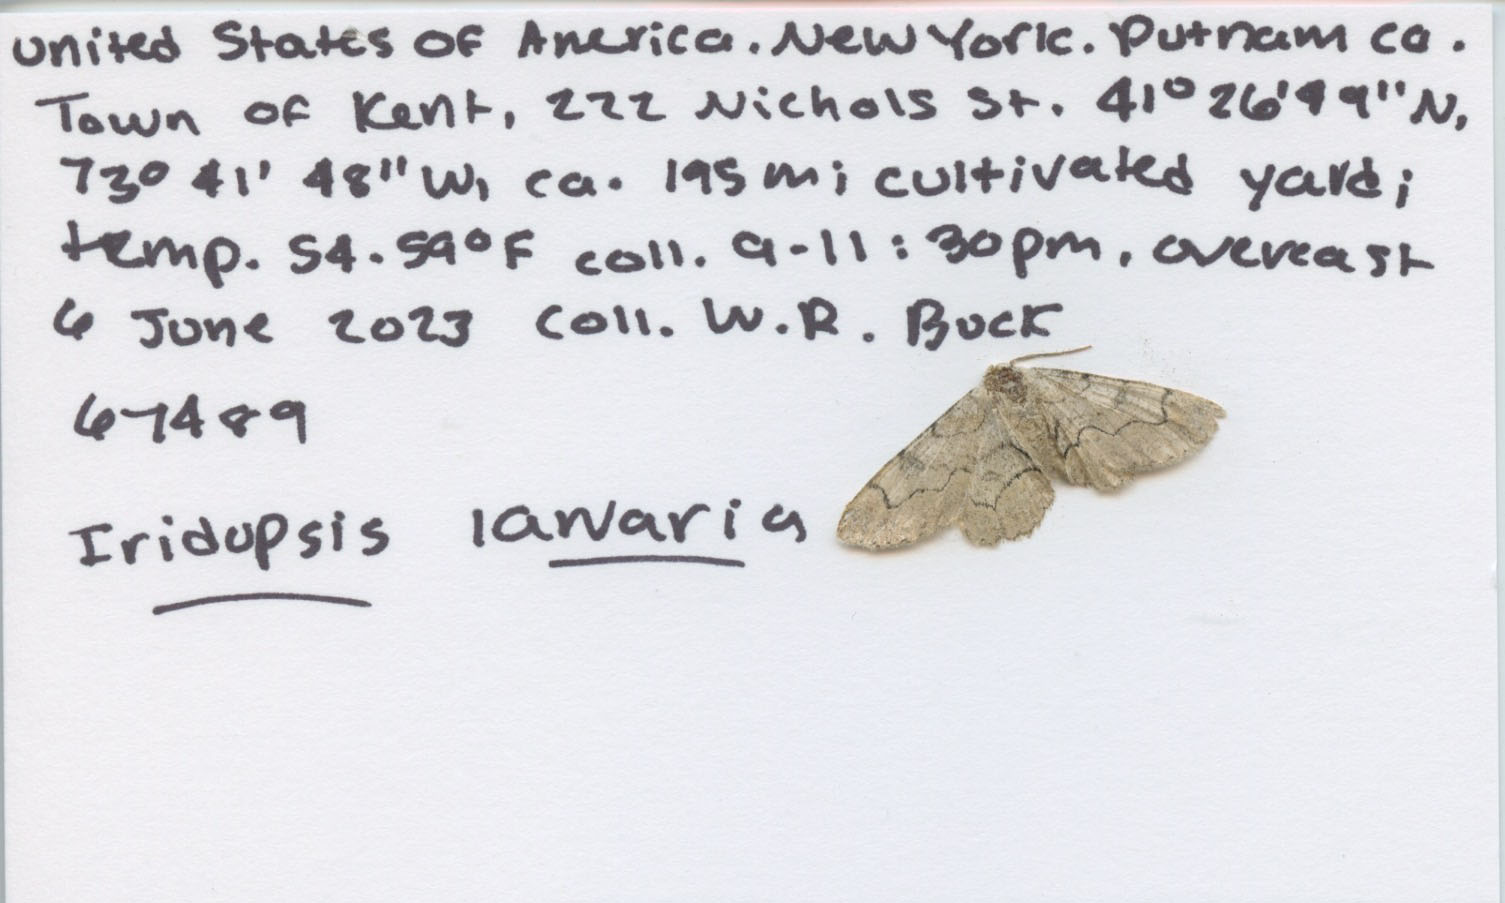 United States of America. New York. Putnam co.
Town of Kent, 222 Nichols St. 41° 26' 49" N,
73° 41' 48" W, ca. 195 m; cultivated yard;
temp. 54.59°F coll. 9-11:30pm, overcast
6 June 2023 coll. W.R. Buck
67489
Iridopsis larvaria